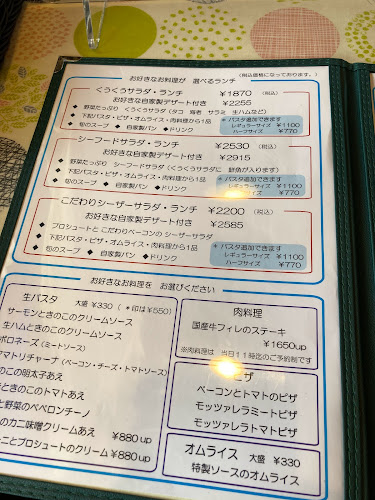 お好きなお料理が 選べるランチ (税込価格になっております。)
くうくうサラダ・ランチ ¥1870 (税込)
お好きな自家製デザート付き ¥2255
◆ 野菜たっぷり くうくうサラダ (タコ 海老 サラミ 生ハムなど)
◆ 下記パスタ・ピザ・オムライス・肉料理から1品
◆ 旬のスープ ◆ 自家製パン ◆ドリンク
* パスタ追加できます
レギュラーサイズ ¥1100
ハーフサイズ ¥770
シーフードサラダ・ランチ ¥2530 (税込)
お好きな自家製デザート付き ¥2915
◆ 野菜たっぷり シーフードサラダ (くうくうサラダに 鮮魚が入ります)
◆ 下記パスタ・ピザ・オムライス・肉料理から1品
◆ 旬のスープ ◆ 自家製パン ◆ドリンク
* パスタ追加できます
レギュラーサイズ ¥1100
ハーフサイズ ¥770
こだわりシーザーサラダ・ランチ ¥2200 (税込)
お好きな自家製デザート付き ¥2585
◆ プロシュートと こだわりベーコンの シーザーサラダ
◆ 下記パスタ・ピザ・オムライス・肉料理から1品
◆ 旬のスープ ◆ 自家製パン ◆ドリンク
* パスタ追加できます
レギュラーサイズ ¥1100
ハーフサイズ ¥770
お好きなお料理を お選びください
生パスタ 大盛 ¥330 (*印は¥550)
サーモンときのこのクリームソース
生ハムときのこのクリームソース
ボロネーズ (ミートソース)
アマトリチャーナ (ベーコン・チーズ・トマトソース)
のこの明太子あえ
ときのこのトマトあえ
と野菜のペペロンチーノ
のカニ味噌クリームあえ ¥880up
ニとプロシュートのクリーム ¥880up
肉料理
国産牛フィレのステーキ
¥1650up
※肉料理は 当日11時迄のご予約制です
ピザ
ベーコンとトマトのピザ
モッツァレラミートピザ
モッツァレラトマトピザ
オムライス 大盛 ¥330
特製ソースのオムライス